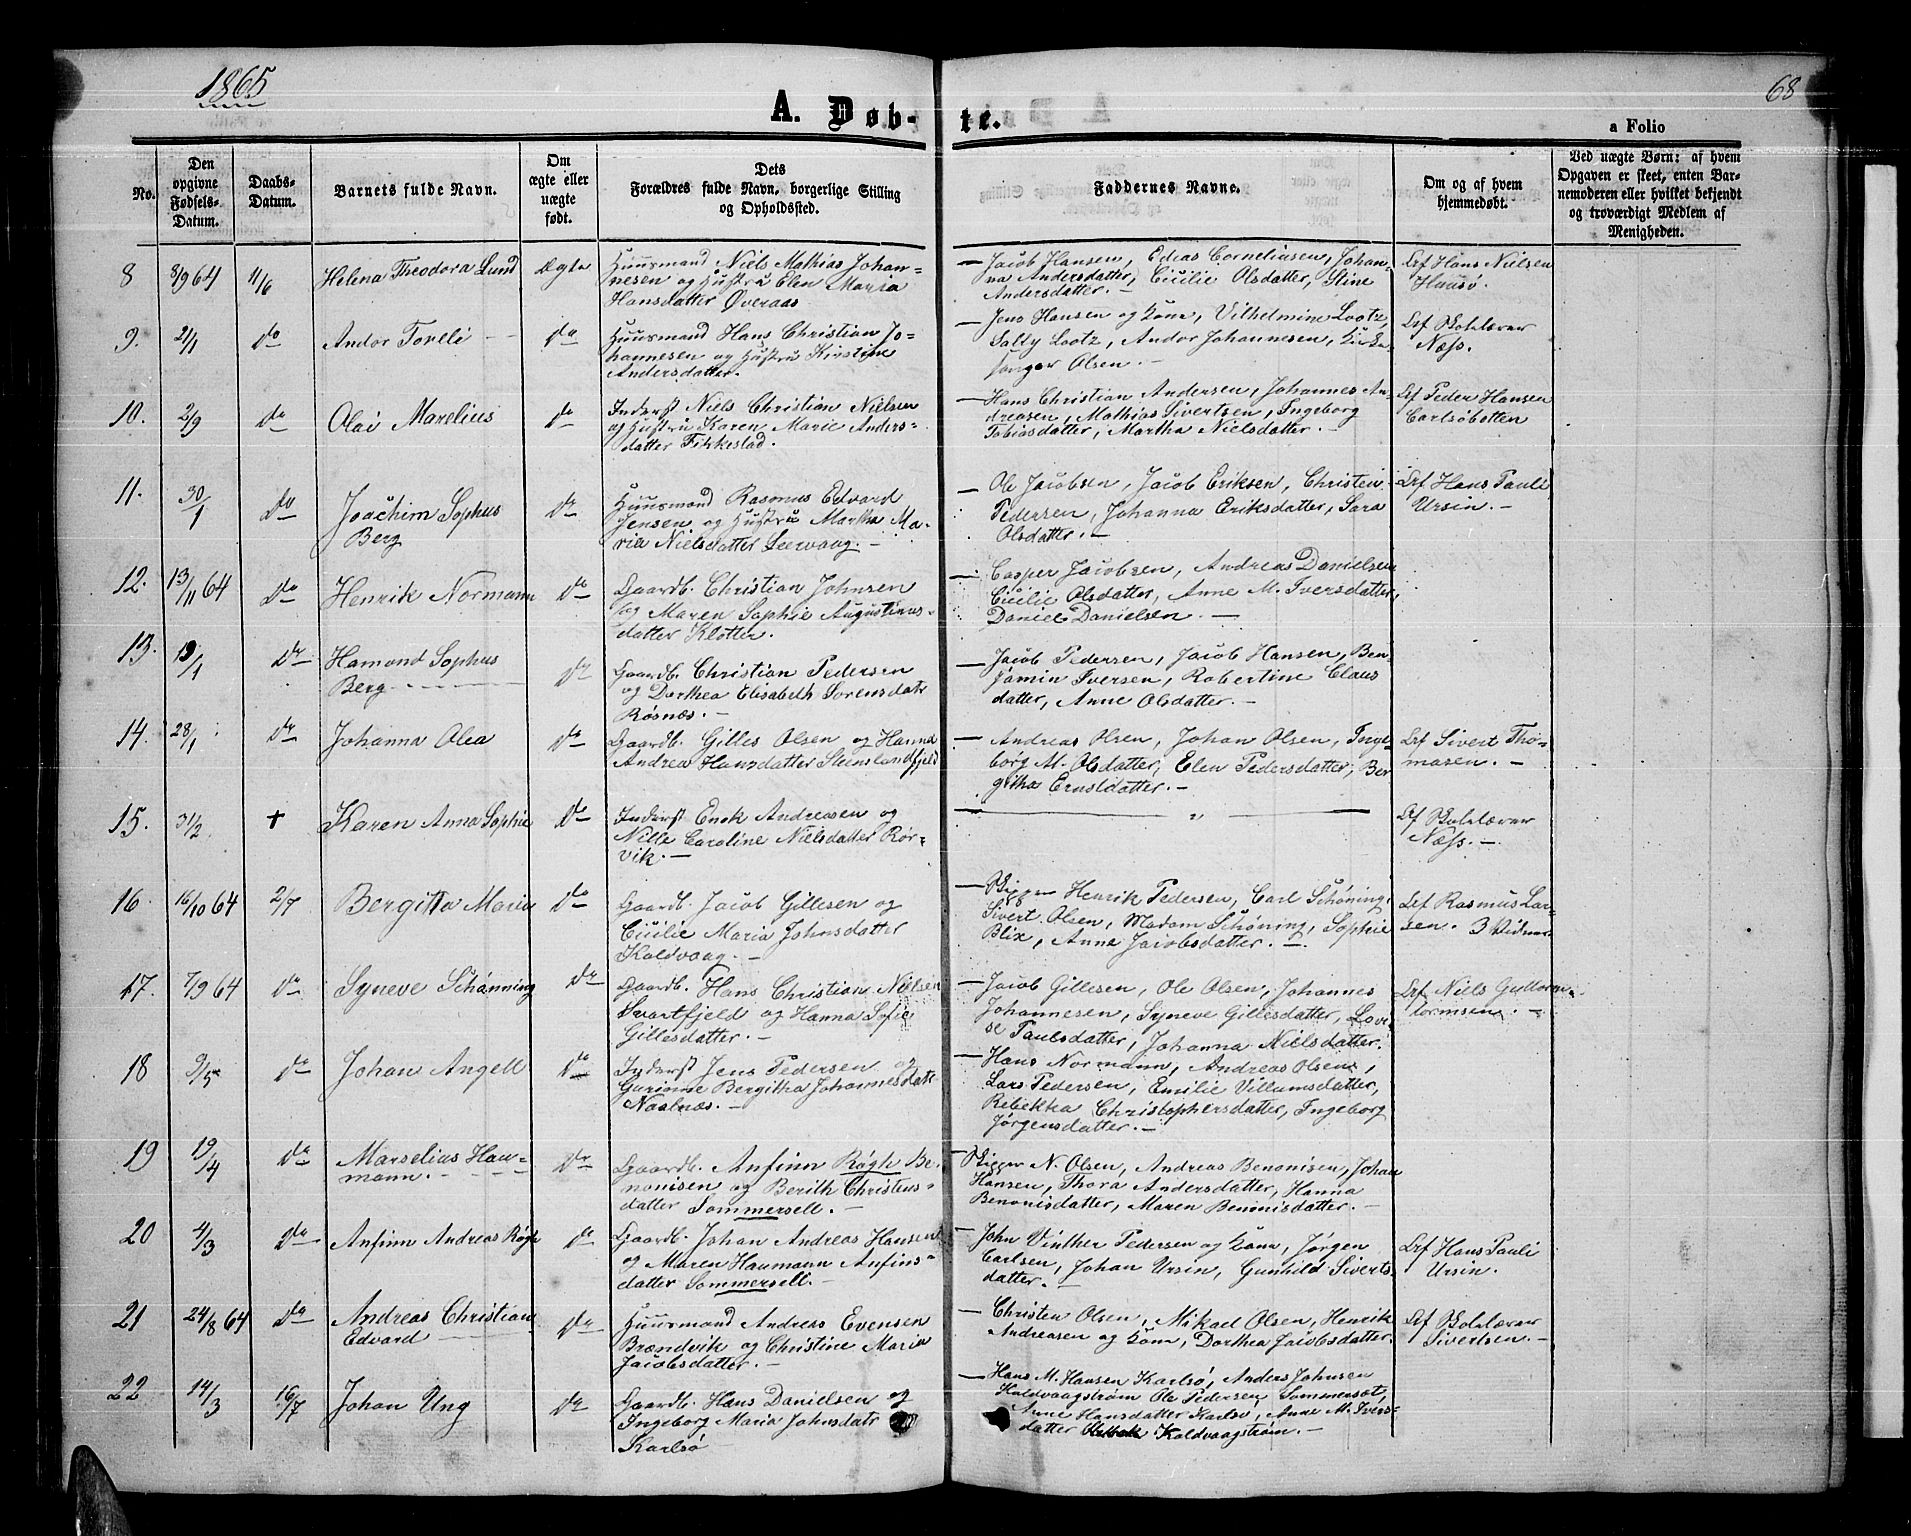 1865
68
A. Døb-
te.
a Folio
No.
Den
opgivne
Fødsels-
Datum.
Daabs-
Datum.
Barnets fulde Navn.
Om
ægte eller
uægte
født.
Dets
Forældres fulde Navn, borgerlige Stilling
og Opholdssted.
Faddernes Navne.
Om og af hvem
hjemmedøbt.
Ved uægte Børn: af hvem
Opgaven er skeet, enten Bar-
nemoderen eller hvilket bekjendt
og troværdigt Medlem af
Menigheden.
8 8/9 64 11/6 Helena Theodora Lund Ægte
Huusmand Niels Mathias Johan-
nesen og Hustru Elen Maria
Hansdatter Øveraas
— Jacob Hansen, Edias Corneliusen, Johan-
na Andersdatter, Cicilie Olsdatter, Stine
Andersdatter. —
Lrf Hans Nielsen
Haasø.
9. 21/1 do Andor Toneli — do
Huusmand Hans Christian Jo-
hannesen og Hustru Kirstine
Andersdatter.
— Jens Hansen og Kone, Vilhelmine Lootz,
Sally Lootz, Andor Johannesen, Kirke-
sanger Olsen. —
Lrf Skolelærer
Næss.
10. 2/9 do Olai Marelius do
Inderst Niels Christian Nielsen
og Hustru Karen Marie Anders-
datter Fikkestad.
— Hans Christian Andersen, Johannes An-
dreasen, Mathias Sivertsen, Ingeborg
Tobiasdatter, Martha Nielsdatter. —
Lrf Peder Hansen
Carlsøbotten
11. 30/1 do Joachim Sophus
Berg do
Huusmand Rasmus Edvard
Jensen og Hustru Martha Ma-
ria Nielsdatter Leervaag. —
— Ole Jacobsen, Jacob Eriksen, Christen
Pedersen, Johanna Eriksdatter, Sara
Olsdatter. —
Lrf Hans Pauli
Ursin. —
12. 13/11 64 do Henrik Normann do
Gaardb. Christian Johnsen
og Maren Sophie Augustinus-
datter Klotter.
— Casper Jacobsen, Andreas Danielsen
Cicilie Olsdatter, Anne M. Iversdatter,
Daniel Danielsen. —
13. 19/1 do Hamond Sophus
Berg — do
Gaardb. Christian Pedersen
og Dorthea Elisabeth Sorensdatr
Røsnæs. —
— Jacob Pedersen, Jacob Hansen, Ben-
jamin Iversen, Robertine Claus
datter, Anne Olsdatter. —
14. 28/1 do Johanna Olea do
Gaardb. Gilles Olsen og Hanna
Andrea Hansdatter Steinslandfjeld
— Andreas Olsen, Johan Olsen, Inge-
borg M. Olsdatter, Elen Pedersdatter, Ber
githa Ernstdatter. —
Lrf Sivert Tho-
masen. —
15. 31/2 + Karen Anna Sophie do
Inderst Enok Andreasen og
Nille Caroline Nielsdatter Rør-
vik. —
— " —
Lrf Skolelærer
Næss. —
16. 16/10 64 2/7 Bergitta Maria do
Gaardb. Jacob Gillesen og
Cicilie Maria Johnsdatter
Koldvaag. —
— Henrik Pedersen, Carl Schøning,
Sivert Olsen, Madam Schøning, Sophie
Blix, Anne Jacobsdatter. —
Lrf Rasmus Lar-
sen. 3 Vidner
17. 7/9 64 do Syneve Schønning do
Gaardb. Hans Christian Nielsen
Svartfjeld og Hanna Sofie
Gillesdatter. —
— Jacob Gillesen, Ole Olsen, Johannes
Johannesen, Syneve Gillesdatter, Lovi-
se Paulsdatter, Johanna Nielsdatter.
Lrf Niels
18 9/5 do Johan Angell do
Inderst Jens Pedersen og
Gurinne Bergitha Johannesdatr
Naalnæs. —
— Hans Normann, Andreas Olsen,
Lars Pedersen, Emilie Villumsdatter,
Rebekka Christophersdatter, Ingeborg
Jørgensdatter. —
19 19/4 do Marselius Hau-
mann. — do
Gaardb. Anfinn Røgh Be-
nonisen og Berith Christens-
datter Sommersell. —
— N. Olsen, Andreas Benonisen, Johan
Hansen, Thora Andersdatter, Hanna
Benonisdatter, Maren Benonisdatter. —
20 4/3 do Anfinn Andreas Røgh do
Gaardb. Johan Andreas Hansen
og Maren Haumann Anfins-
datter Sommersell. —
— John Vinther Pedersen og Kone, Jørgen
Carlsen, Johan Ursin, Gunhild Siverts-
datter. —
Lrf Hans Pauli
Ursin. —
21 24/8 64 do Andreas Christian
Edvard — do
Huusmand Andreas Evensen
Brændvik og Christine Maria
Jacobsdatter. —
— Christen Olsen, Mikael Olsen, Henrik
Andreasen og Kone, Dorthea Jacobsdatter.
Lrf Skolelærer
Sivertsen. —
22 14/3 16/7 Johan Ung do
Gaardb. Hans Danielsen og
Ingeborg Maria Johnsdatr
Karlsø
— Hans M. Hansen Karlsø, Anders Johnsen
Koldvaagstrøm Ole Pedersen Sommersat,
Anne Hansdatter Karlsø, Anne M. Ivers-
datter Koldvaagstrøm. —